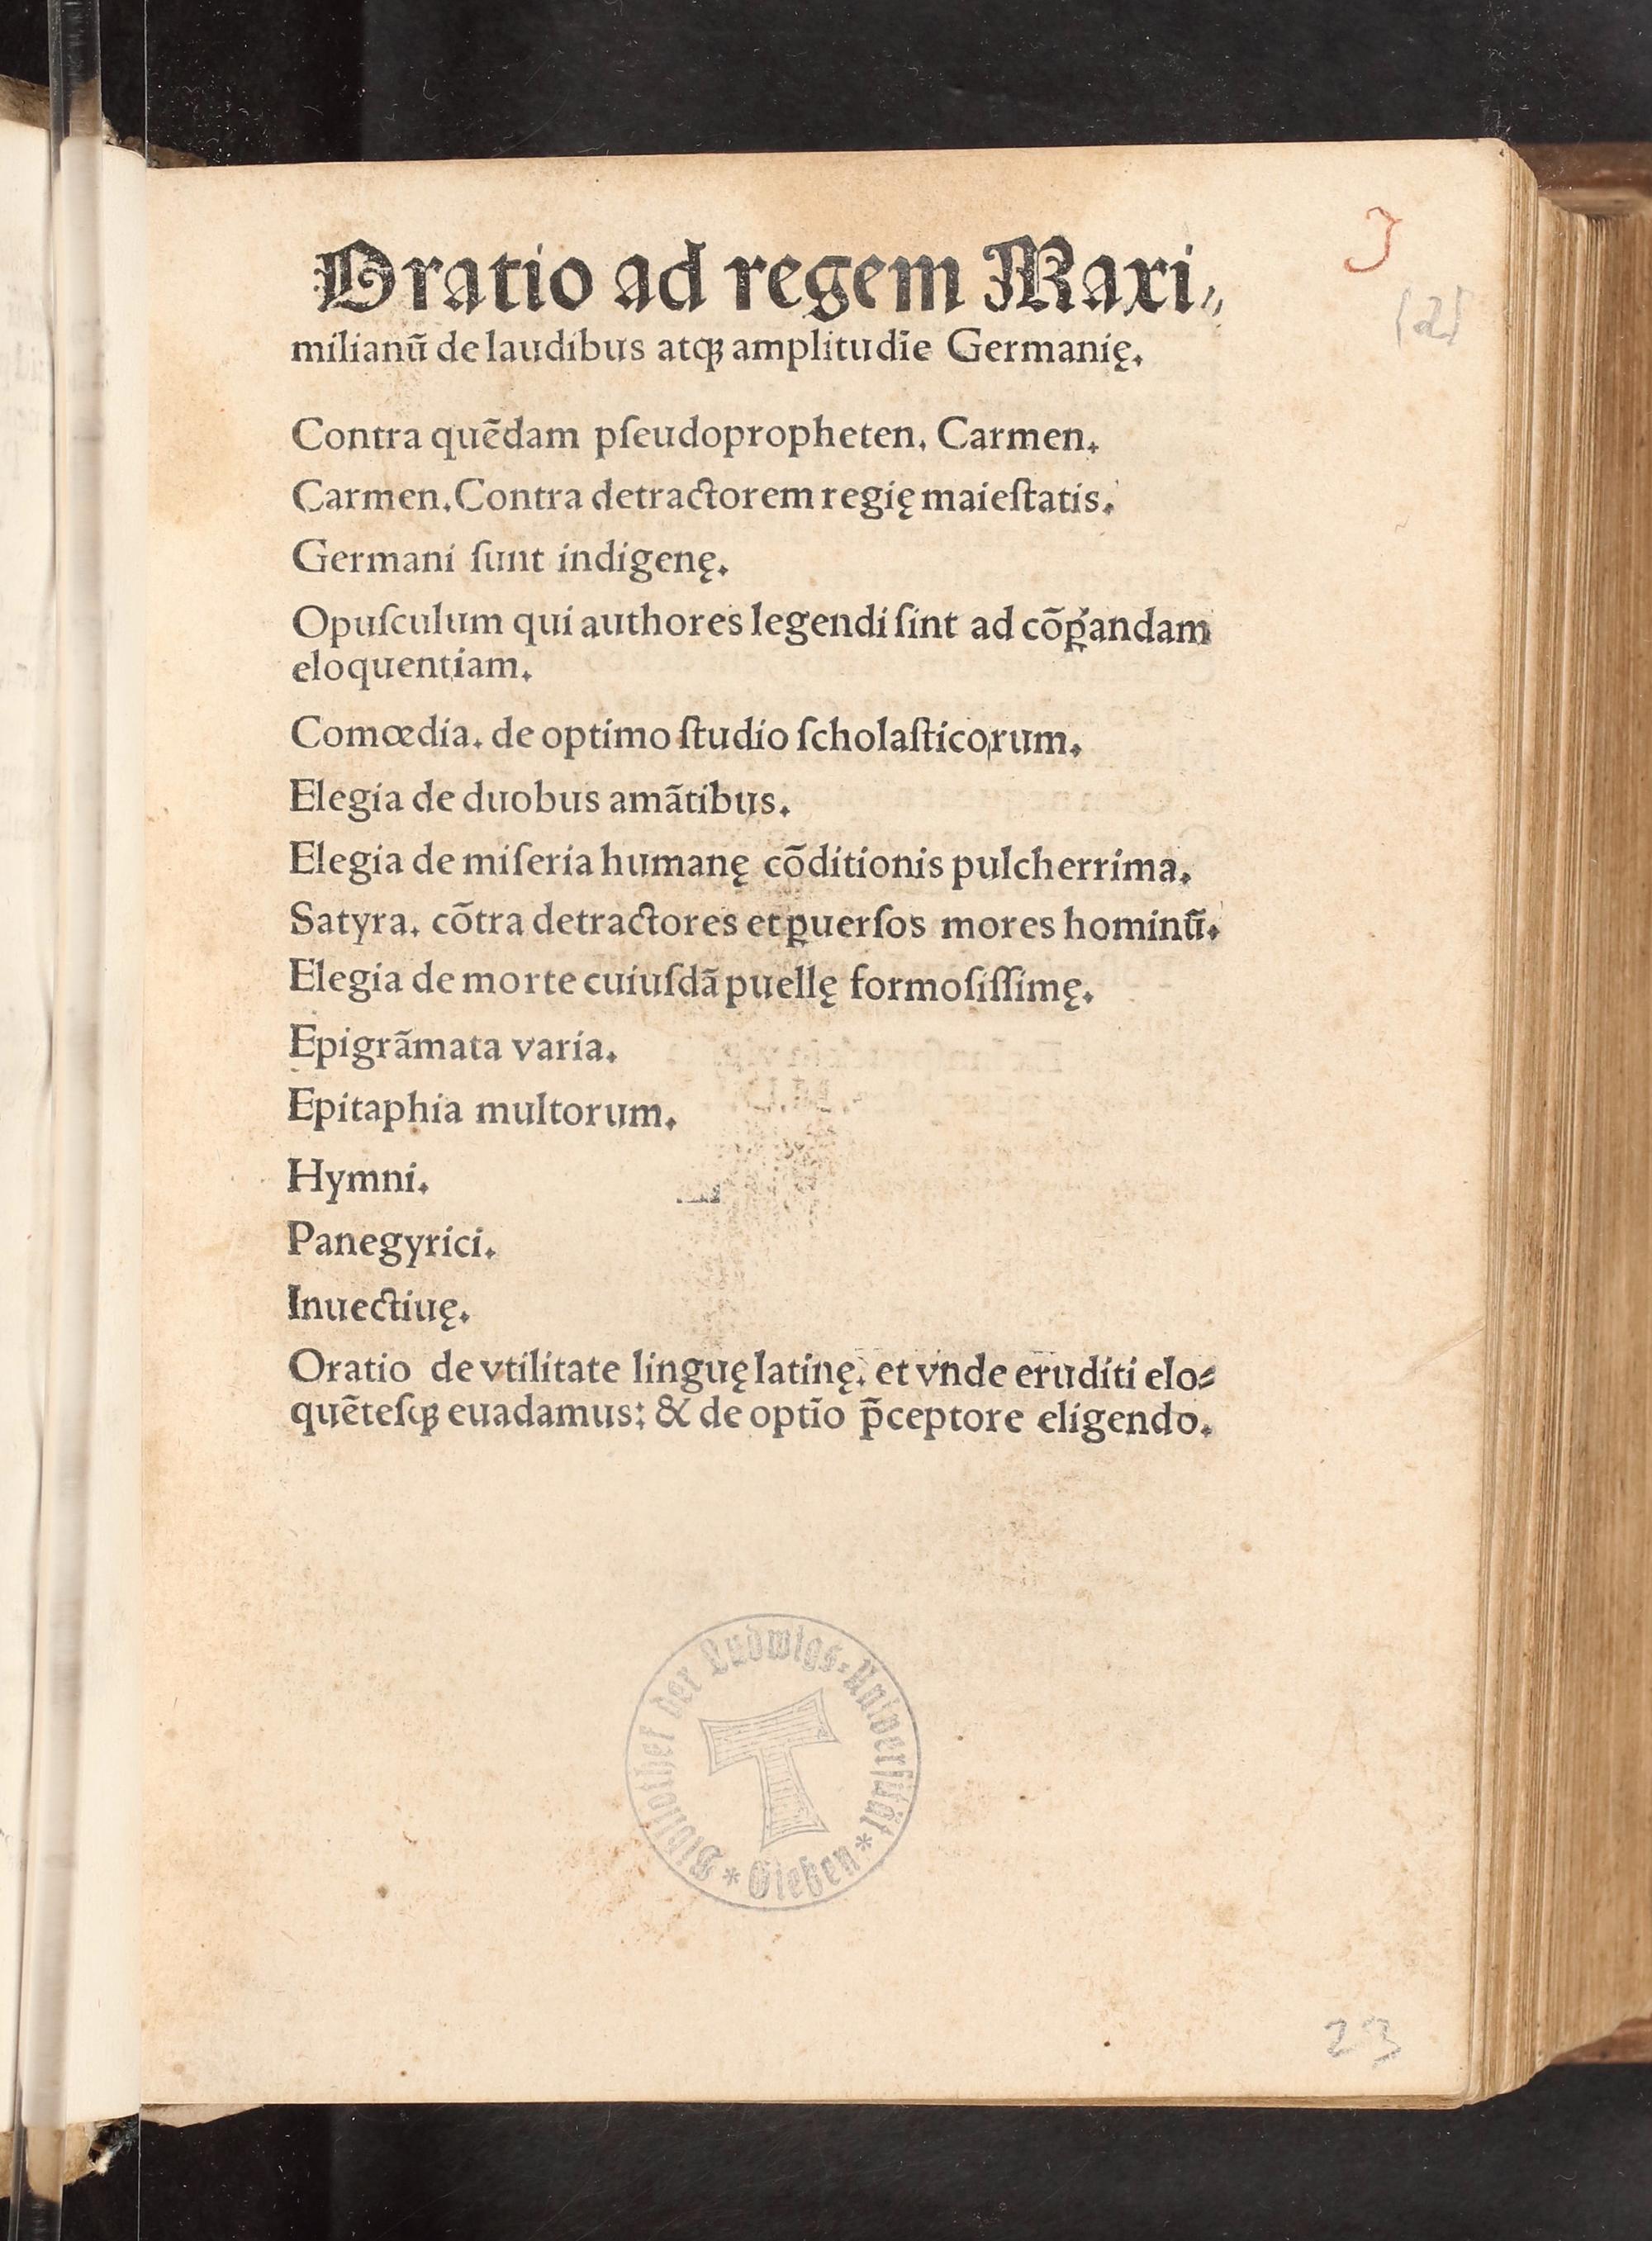 Oratio ad regem Maxi⸗
milianū de laudibus atqꝫ amplitudīe Germanię.
Contra quēdam pſeudopropheten. Carmen.
Carmen. Contra detractorem regię maieſtatis.
Germani ſunt indigenę.
Opuſculum qui authores legendi ſint ad cōꝑandam
eloquentiam.
Comœdia. de optimo ſtudio ſcholaſticorum.
Elegia de duobus amātibus.
Elegia de miſeria humanę cōditionis pulcherrima.
Satyra. cōtra detractores et ꝑuerſos mores hominū.
Elegia de morte cuiuſdā puellę formoſiſſimę.
Epigrāmata varia.
Epitaphia multorum.
Hymni.
Panegyrici.
Inuectiuę.
Oratio de vtilitate linguę latinę. et vnde eruditi elo⸗
quēteſqꝫ euadamus: & de optīo p̄ceptore eligendo.
Bibliothek der Ludwigs-Universität * Gießen *
23